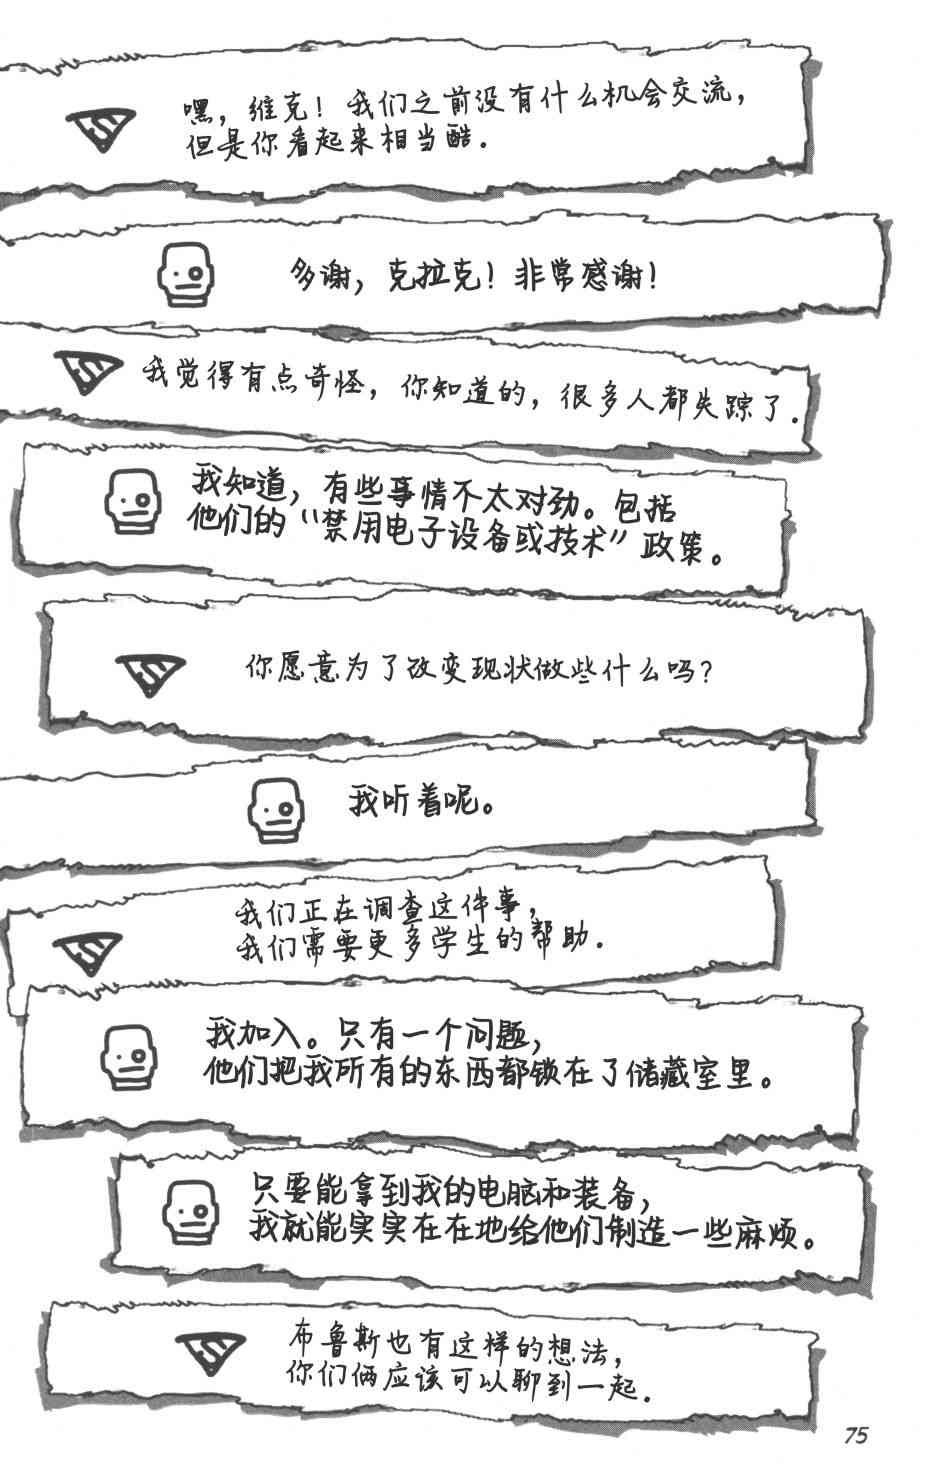 嘿，维克！我们之前没有什么机会交流，
但是你看起来相当酷.
多谢，克拉克！非常感谢！
我觉得有点奇怪，你知道的，很多人都失踪了.
我知道，有些事情不太对劲。包括
他们的“禁用电子设备或技术”政策。
你愿意为了改变现状做些什么吗？
我听着呢。
我们正在调查这件事，
我们需要更多学生的帮助.
我加入。只有一个问题，
他们把我所有的东西都锁在了储藏室里。
只要能拿到我的电脑和装备，
我就能实实在在地给他们制造一些麻烦。
布鲁斯也有这样的想法，
你们俩应该可以聊到一起.
75